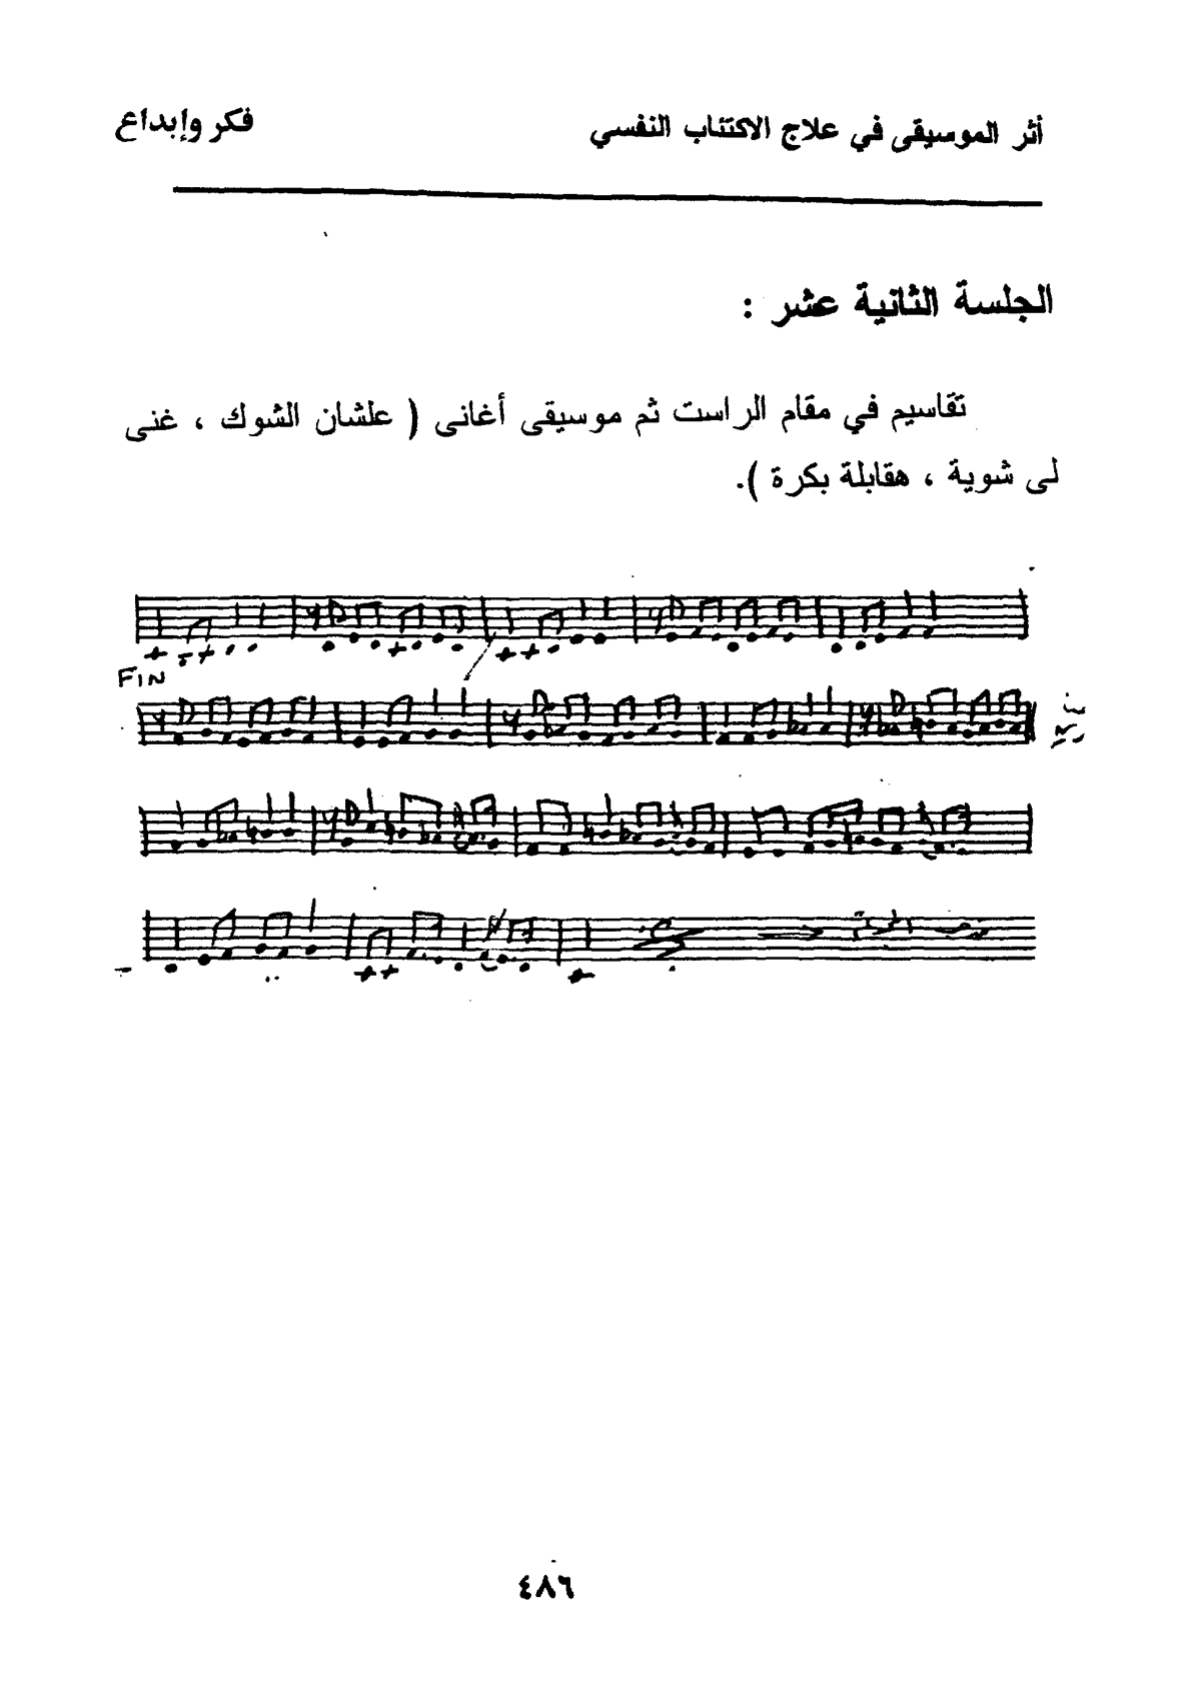 أثر الموسيقى في علاج الاكتئاب النفسي فكر وإبداع
الجلسة الثانية عشر :
تقاسيم في مقام الراست ثم موسيقى أغانى ( علشان الشوك ، غنى
لى شوية ، هقابلة بكرة ).
FIN
٤٨٦